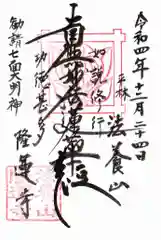 令和四年十二月二十四日
平林
法養山
如説修行
南無妙法蓮華経
功徳甚多
勧請七面大明神
隆蓮寺